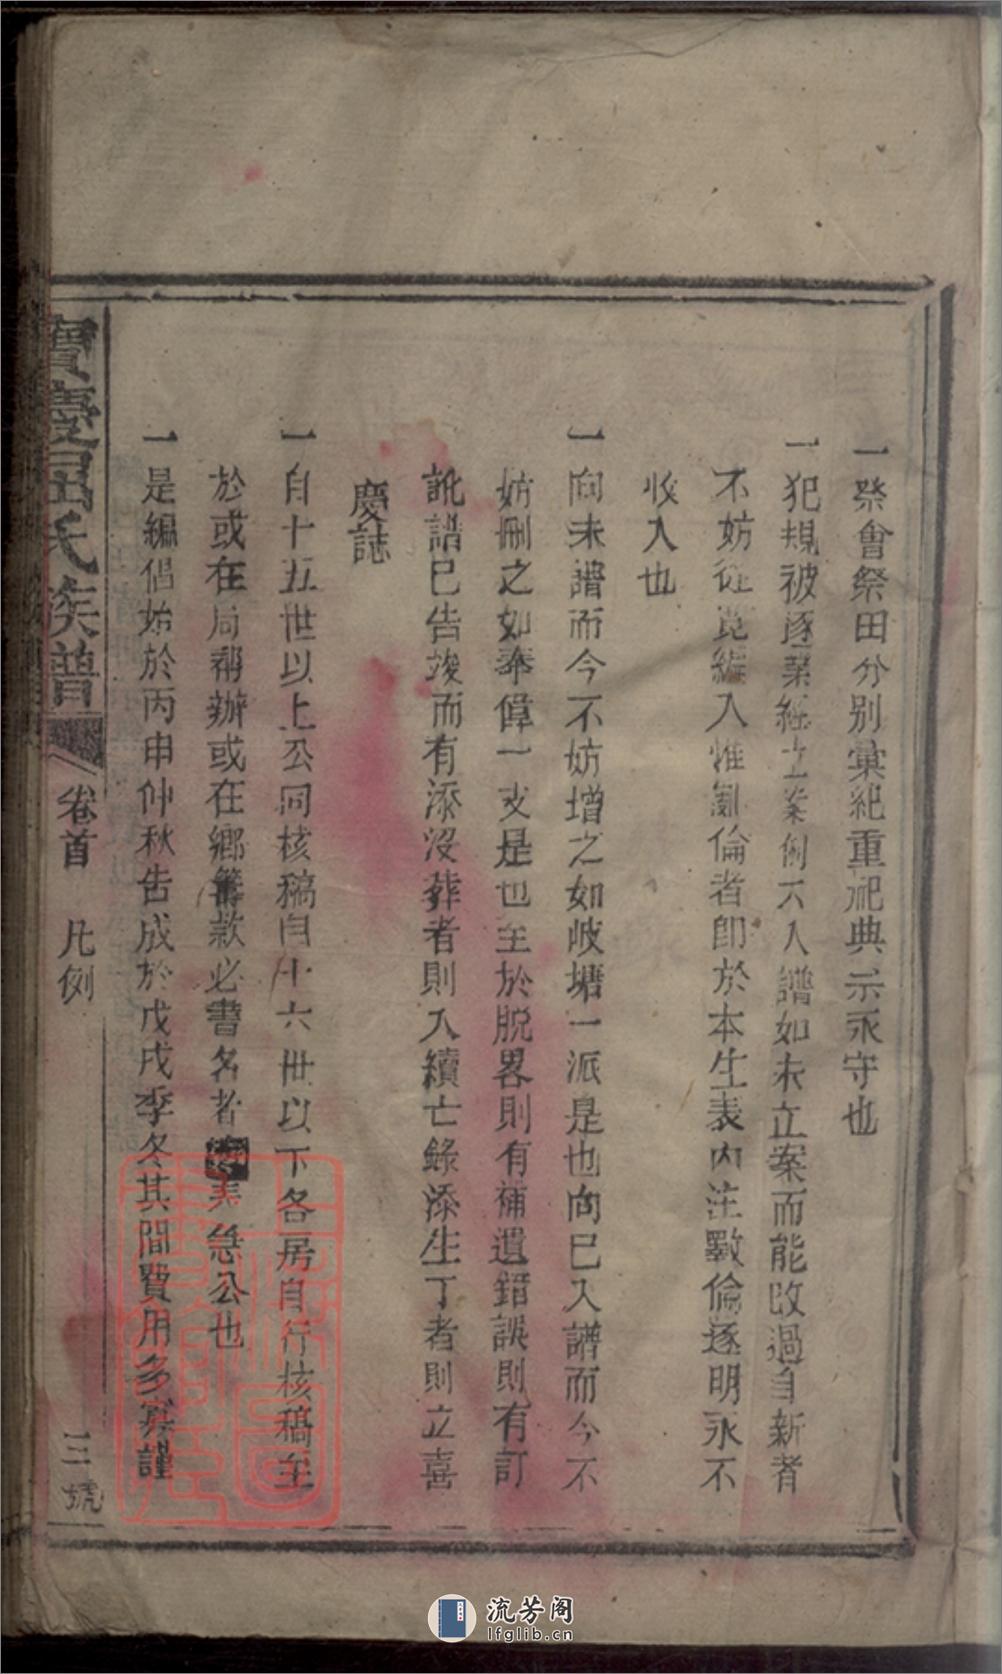 一祭會祭田分別彙紀重祀典示永守也
一犯規被逐業經立案例不入譜如未立案而能改過自新者
不妨從寬編入惟亂倫者即於本生表內注斁倫逐明永不
收入也
一向未譜而今不妨增之如岐塘一派是也向已入譜而今不
妨刪之如泰偉一支是也至於脫畧則有補遺錯誤則有訂
訛譜已告竣而有添沒葬者則入續亡錄添生丁者則立喜
慶誌
一自十五世以上公同核稿自十六世以下各居自行核稿至
於或在局幫辦或在鄉籌款必書名者美急公也
一是編倡始於丙申仲秋告成於戊戌季冬其間費用多寡謹
寶慶呂氏族譜
卷首 凡例
三號
流芳阁
lfglib.cn